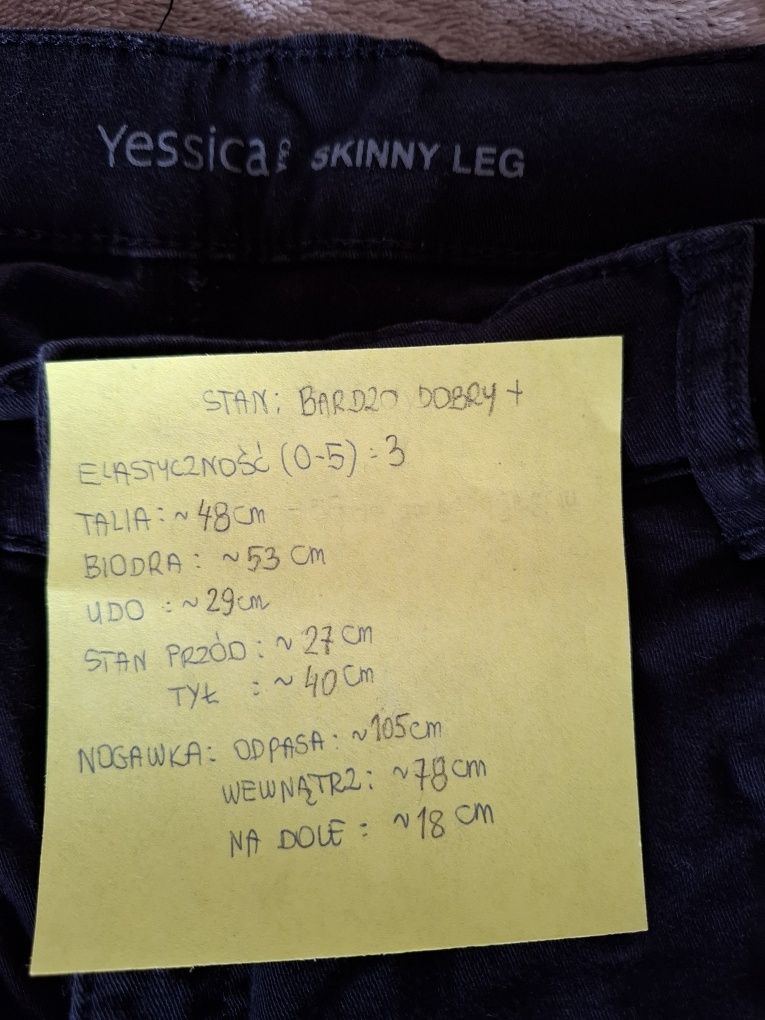 Yessica SKINNY LEG
STAN: BARDZO DOBRY +
ELASTYCZNOŚĆ (0-5): 3
TALIA: ~ 48cm
BIODRA: ~53 cm
UDO : ~ 29cm
STAN PRZÓD: ~ 27 cm
TYŁ : ~ 40 cm
NOGAWKA: OD PASA: ~105cm
WEWNĄTRZ: ~78cm
NA DOLE: ~18 cm